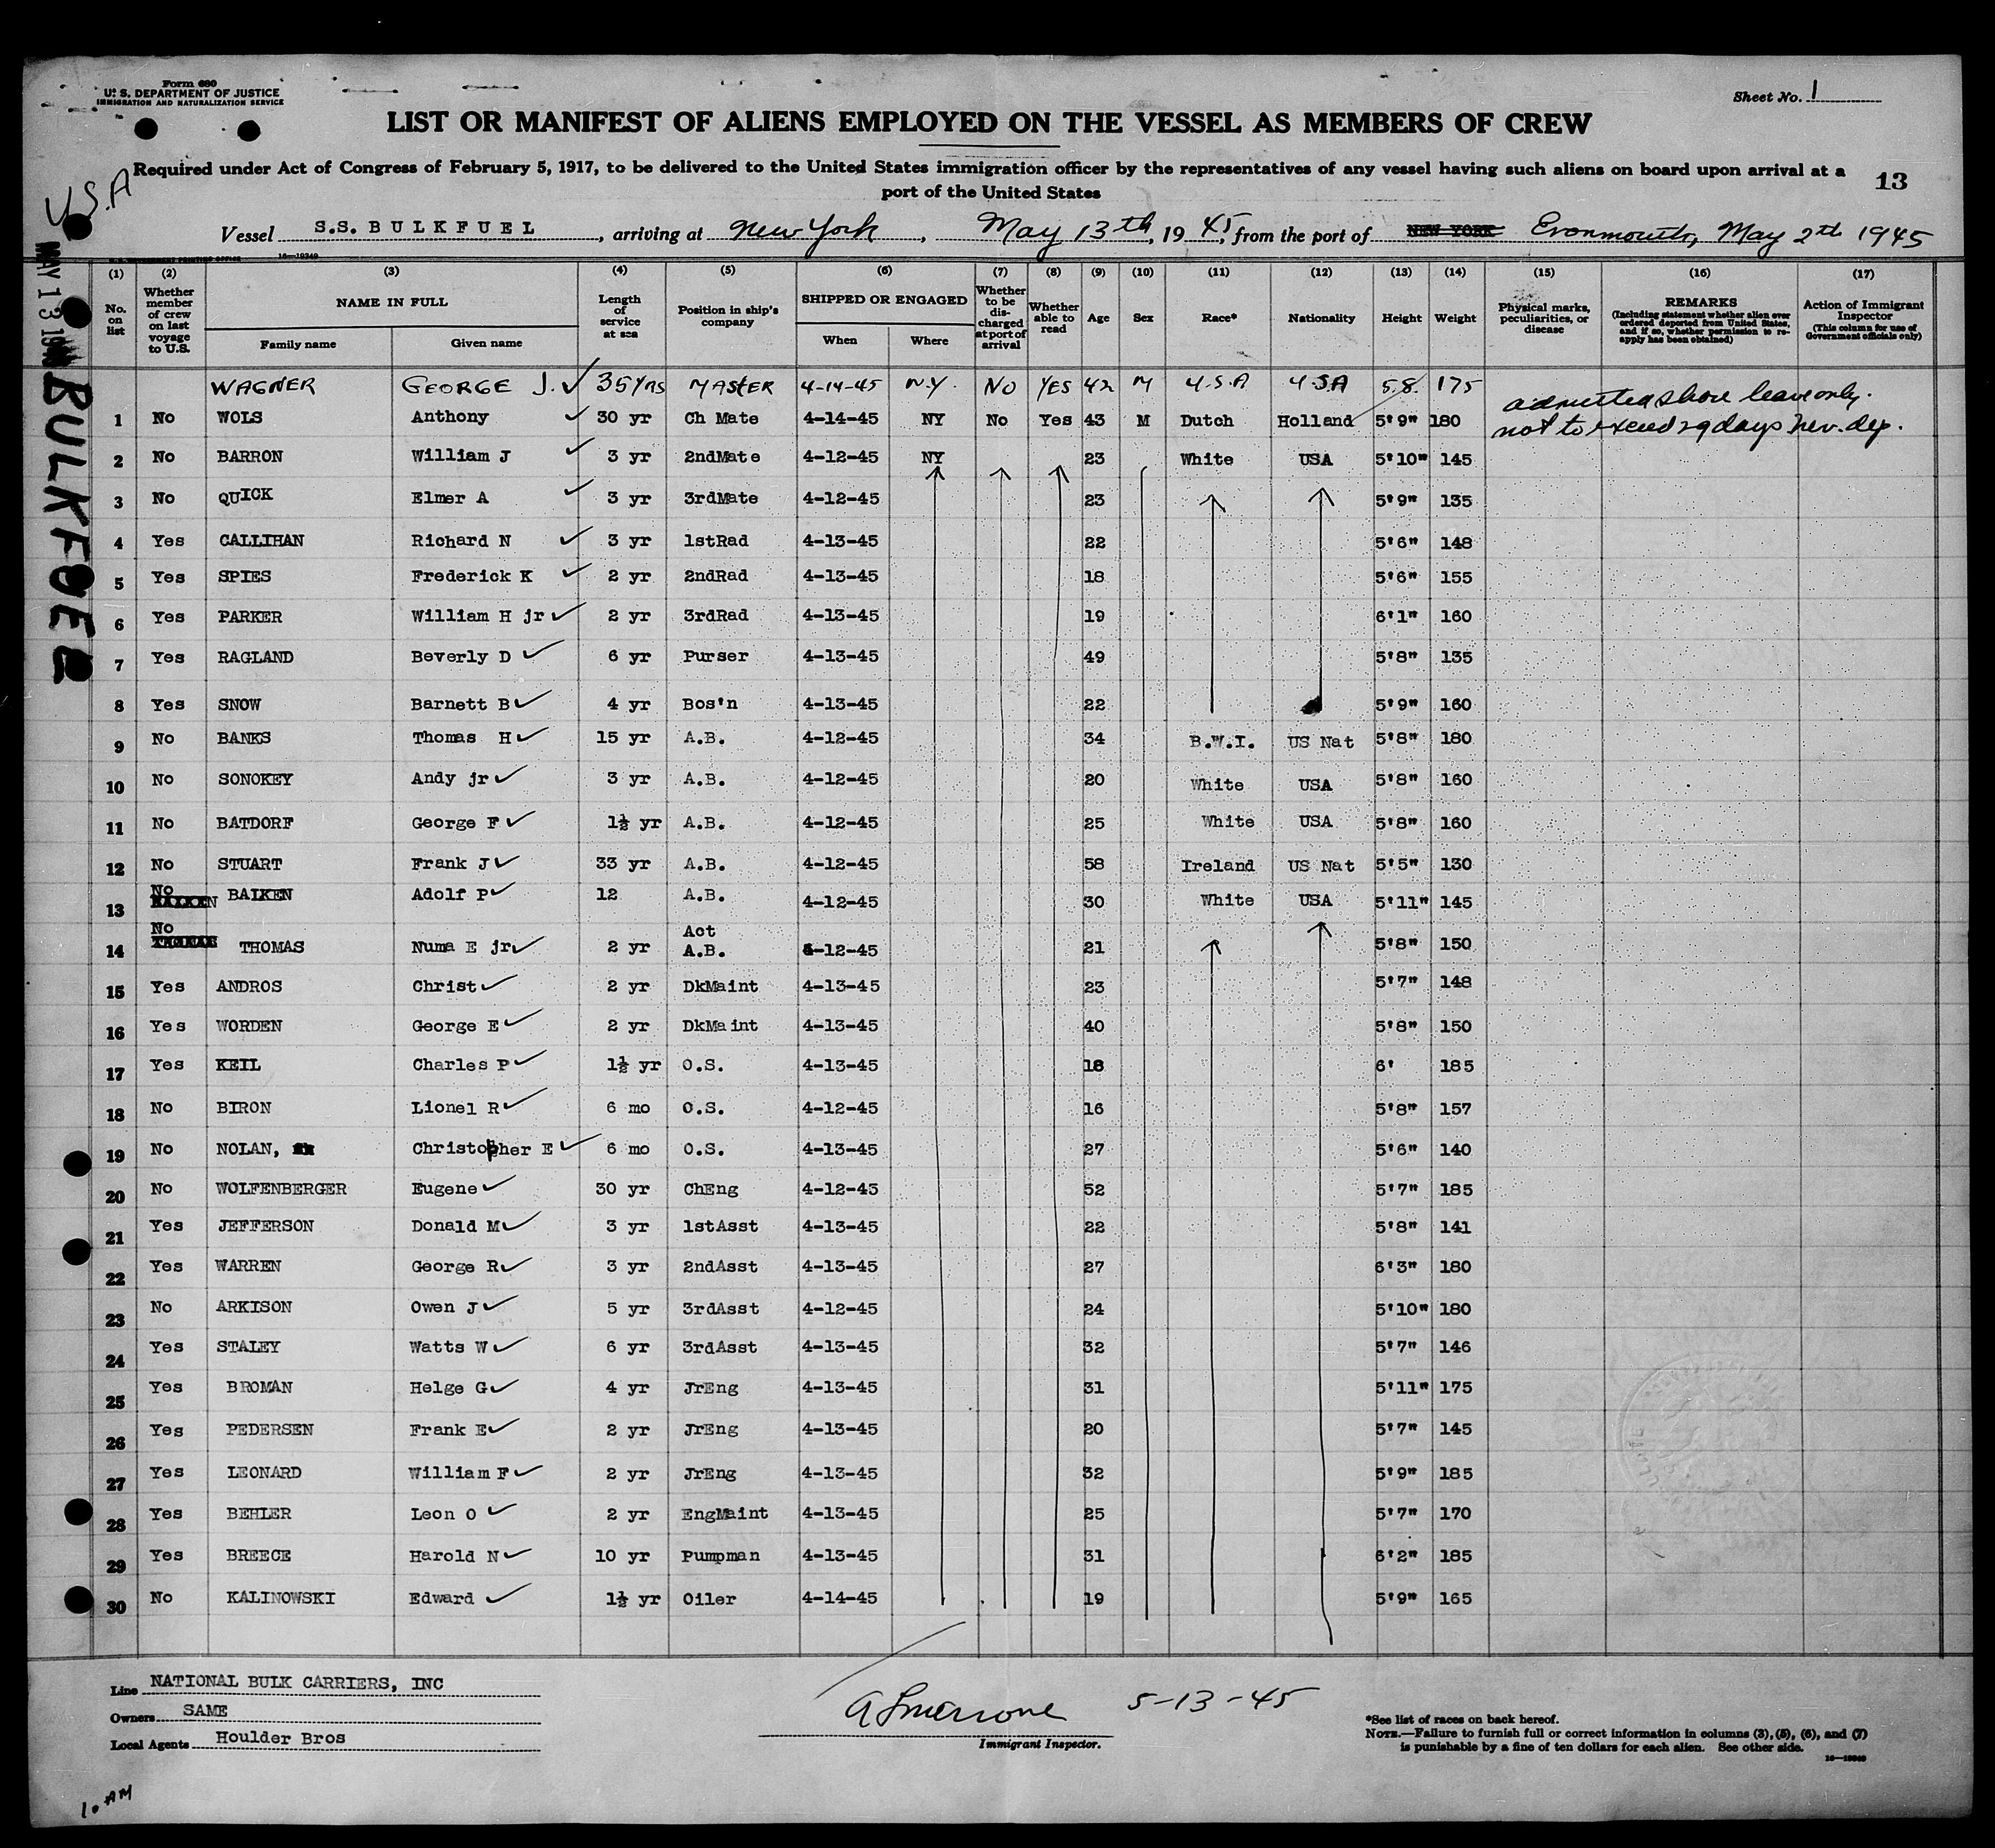 Form 680
U. S. DEPARTMENT OF JUSTICE
IMMIGRATION AND NATURALIZATION SERVICE
Sheet No. 1
LIST OR MANIFEST OF ALIENS EMPLOYED ON THE VESSEL AS MEMBERS OF CREW
Required under Act of Congress of February 5, 1917, to be delivered to the United States immigration officer by the representatives of any vessel having such aliens on board upon arrival at a
port of the United States
13
U.S.A
Vessel S.S. BULKFUEL, arriving at New York, May 13th, 1945, from the port of NEW YORK Evonmouth, May 2th 1945
16-19349
MAY 13
BULKFUEL
(1) (2) (3) (4) (5) (6) (7) (8) (9) (10) (11) (12) (13) (14) (15) (16) (17)
No. on list
Whether member of crew on last voyage to U.S.
NAME IN FULL
Family name
Given name
Length of service at sea
Position in ship's company
SHIPPED OR ENGAGED
When
Where
Whether to be discharged at port of arrival
Whether able to read
Age
Sex
Race*
Nationality
Height
Weight
Physical marks, peculiarities, or disease
REMARKS
(Including statement whether alien ever ordered deported from United States, and if so, whether permission to reapply has been obtained)
Action of Immigrant Inspector
(This column for use of Government officials only)
WAGNER GEORGE J. 35 YRS MASTER 4-14-45 N.Y. NO YES 42 M U.S.A U.S.A 5.8. 175
admitted shore leave only.
1 No WOLS Anthony 30 yr Ch Mate 4-14-45 NY No Yes 43 M Dutch Holland 5'9" 180
not to exceed 29 days
2 No BARRON William J 3 yr 2ndMate 4-12-45 NY 23 White USA 5'10" 145
3 No QUICK Elmer A 3 yr 3rdMate 4-12-45 23 5'9" 135
4 Yes CALLIHAN Richard N 3 yr 1stRad 4-13-45 22 5'6" 148
5 Yes SPIES Frederick K 2 yr 2ndRad 4-13-45 18 5'6" 155
6 Yes PARKER William H jr 2 yr 3rdRad 4-13-45 19 6'1" 160
7 Yes RAGLAND Beverly D 6 yr Purser 4-13-45 49 5'8" 135
8 Yes SNOW Barnett B 4 yr Bos'n 4-13-45 22 5'9" 160
9 No BANKS Thomas H 15 yr A.B. 4-12-45 34 B.W.I. US Nat 5'8" 180
10 No SONOKEY Andy jr 3 yr A.B. 4-12-45 20 White USA 5'8" 160
11 No BATDORF George F 1½ yr A.B. 4-12-45 25 White USA 5'8" 160
12 No STUART Frank J 33 yr A.B. 4-12-45 58 Ireland US Nat 5'5" 130
13 No BAIKEN Adolf P 12 A.B. 4-12-45 30 White USA 5'11" 145
14 No THOMAS THOMAS Numa E jr 2 yr Act A.B. 4-12-45 21 5'8" 150
15 Yes ANDROS Christ 2 yr DkMaint 4-13-45 23 5'7" 148
16 Yes WORDEN George E 2 yr DkMaint 4-13-45 40 5'8" 150
17 Yes KEIL Charles P 1½ yr O.S. 4-13-45 18 6' 185
18 No BIRON Lionel R 6 mo O.S. 4-12-45 16 5'8" 157
19 No NOLAN, Christopher E 6 mo O.S. 4-13-45 27 5'6" 140
20 No WOLFENBERGER Eugene 30 yr ChEng 4-12-45 52 5'7" 185
21 Yes JEFFERSON Donald M 3 yr 1stAsst 4-13-45 22 5'8" 141
22 Yes WARREN George R 3 yr 2ndAsst 4-13-45 27 6'3" 180
23 No ARKISON Owen J 5 yr 3rdAsst 4-12-45 24 5'10" 180
24 Yes STALEY Watts W 6 yr 3rdAsst 4-13-45 32 5'7" 146
25 Yes BROMAN Helge G 4 yr JrEng 4-13-45 31 5'11" 175
26 Yes PEDERSEN Frank E 2 yr JrEng 4-13-45 20 5'7" 145
27 Yes LEONARD William F 2 yr JrEng 4-13-45 32 5'9" 185
28 Yes BEHLER Leon O 2 yr EngMaint 4-13-45 25 5'7" 170
29 Yes BREECE Harold N 10 yr Pumpman 4-13-45 31 6'2" 185
30 No KALINOWSKI Edward 1½ yr Oiler 4-14-45 19 5'9" 165
Line NATIONAL BULK CARRIERS, INC
Owners SAME
Local Agents Houlder Bros
5-13-45
Immigrant Inspector.
*See list of races on back hereof.
NOTE.—Failure to furnish full or correct information in columns (3), (5), (6), and (7)
is punishable by a fine of ten dollars for each alien. See other side.
10 AM